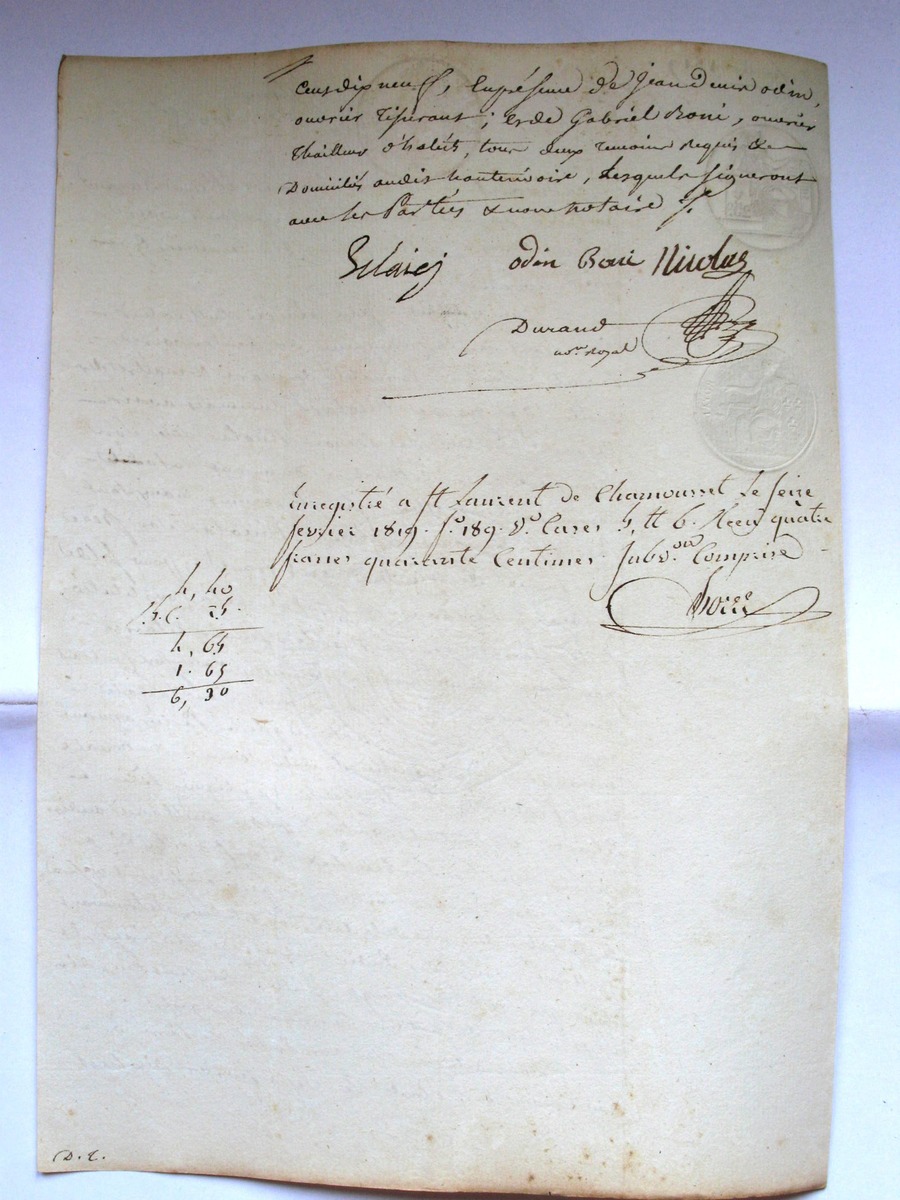 Cens dix neuf, En présence de Jean Denis odin,
ouvrier Tisserant; Et de Gabriel Boni, ouvrier
Thailleur d'habits, tous deux temoins Requis &
Domiciliés audit hauterivoire, Lesquels signeront
avec les Parties & nous notaire
odin Boni Nicolas
Durand
no.re Royal
Enregistré a St Laurent de Chamousset Le seize
fevrier 1819. f.o 189. V.o Cases 5, et 6. Recu quatre
francs quarante Centimes. subv.on Comprise
4, 40
25.
4, 65
1. 65
6, 30
D. T.